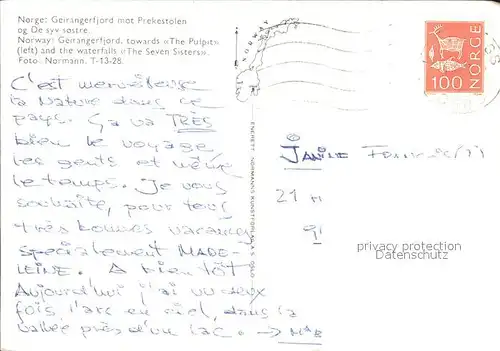 Norge: Geirangerfjord mot Prekestolen
og De syv søstre.
Norway: Geirangerfjord, towards «The Pulpit»
(left) and the waterfalls «The Seven Sisters».
Foto: Normann. T-13-28.
C'est merveilleuse
la Nature dans ce
pays. Ça va TRÈS
bien le voyage
les gents et même
le temps. Je vous
souhaite, pour tous
très bonnes vacances
spécialement MADE-
LEINE. A bien tôt
Aujourd'hui j'ai vu deux
fois l'arc en ciel, dans la
vallée près d'un lac. →
NORWAY
NORGE
100
ENERETT: NORMANNS KUNSTFORLAG A/S, OSLO
JANINE
21
91
privacy protection
Datenschutz